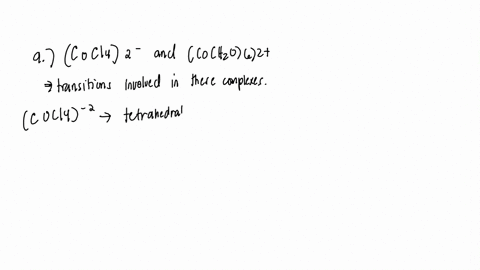 a.) (CoCl4) 2- and ((CO(H2O)6)2+
→ transitions involved in these complexes.
(COCl4)-2 → tetrahedral